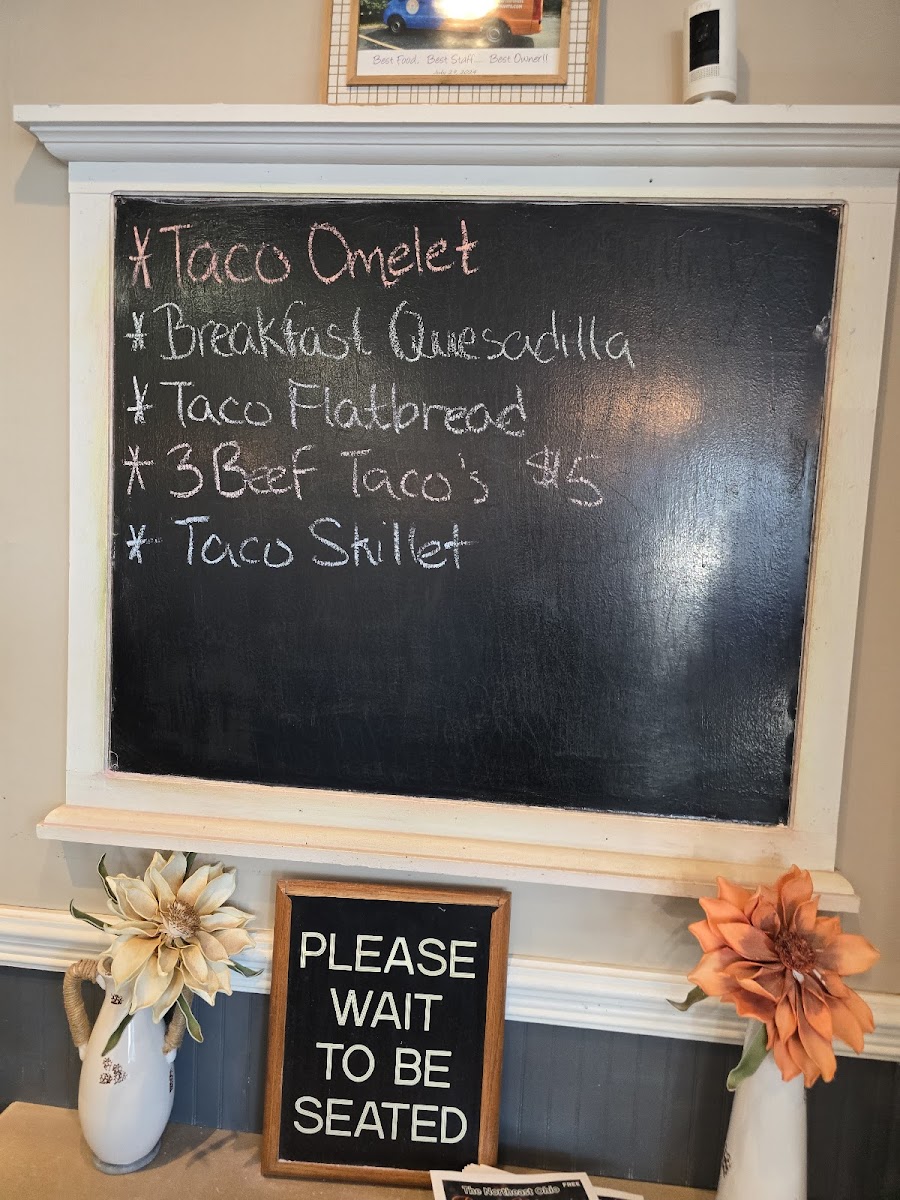 Best Food. Best Staff.... Best Owner!!
* Taco Omelet
* Breakfast Quesadilla
* Taco Flatbread
* 3 Beef Taco's $5
* Taco Skillet
PLEASE
WAIT
TO BE
SEATED
The Northeast Ohio FREE